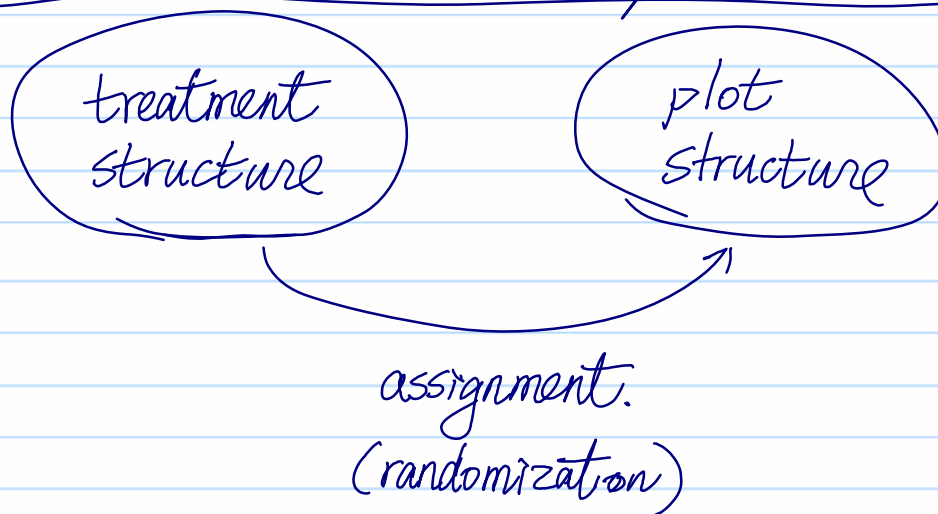 treatment
structure
plot
structure
assignment.
(randomization)